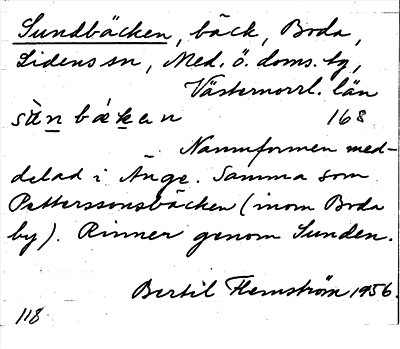 Sundbäcken, bäck, Boda,
Lidens sn, Med. ö. doms. tg,
Västernorrl. län
sùn bækan 168
Namnformen med-
delad i Änge. Samma som
Petterssonsbäcken (inom Boda
by). Rinner genom Sunden.
Bertil Flemström 1956.
118